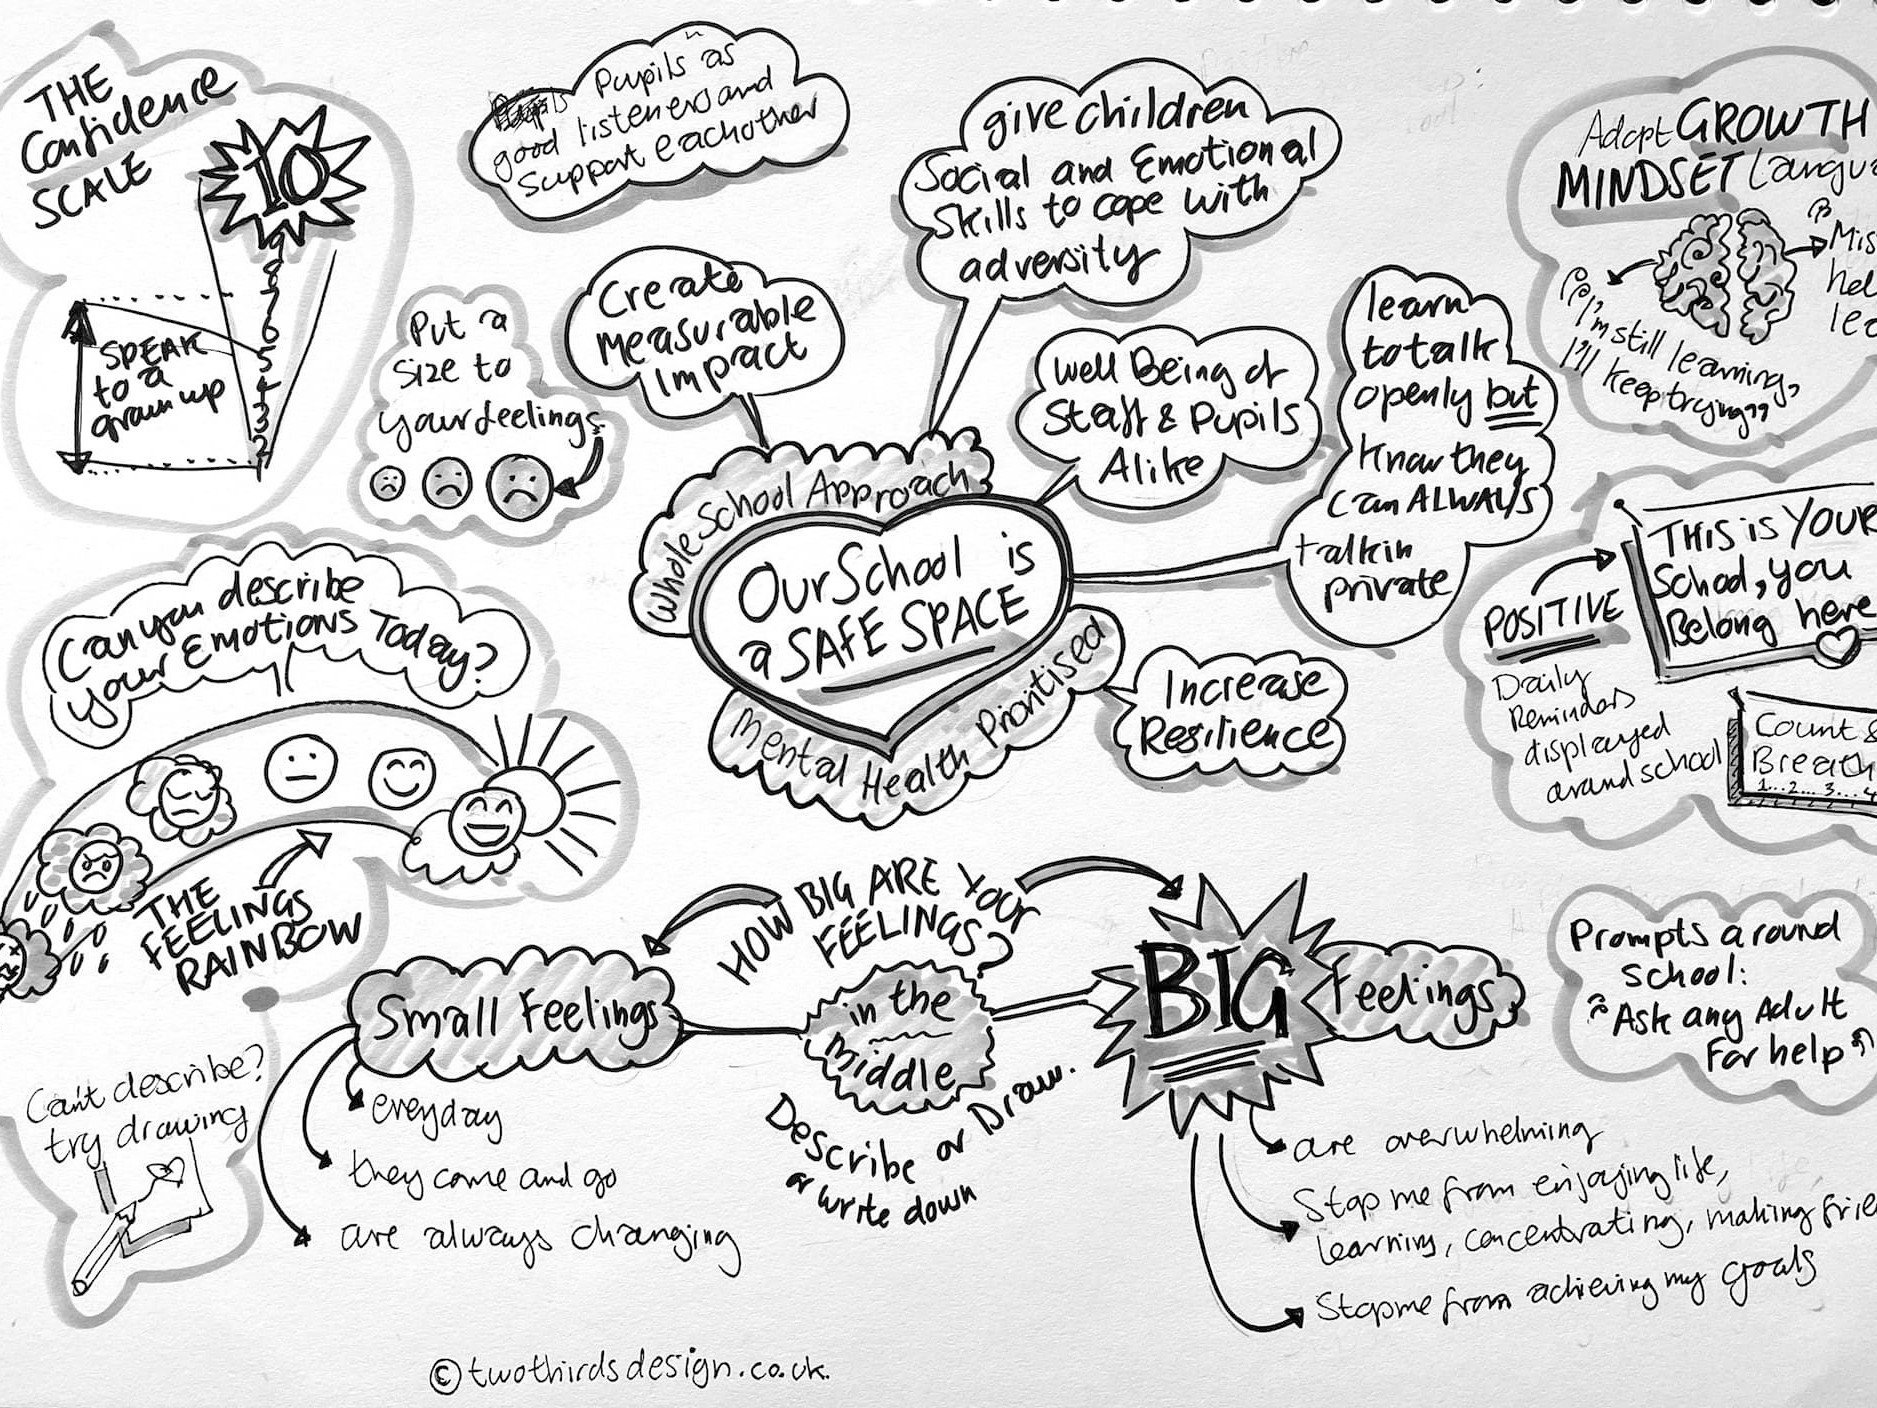 THE
Confidence
SCALE
10
9
8
7
6
5
4
3
2
1
SPEAK
to a
grown up
Pupils as
good listeners and
support eachother
give children
Social and Emotional
Skills to cope with
adversity
Create
Measurable
Impact
Put a
size to
your feelings
Well Being of
Staff & Pupils
Alike
learn
to talk
openly but
know they
can ALWAYS
talk in
private
Adopt GROWTH
MINDSET Langu
"I'm still learning,
I'll keep trying"
" Mis
hel
lea
Whole School Approach
Our School is
a SAFE SPACE
Mental Health Prioritised
Increase
Resilience
POSITIVE
Daily
Reminders
displayed
around school
THIS is YOUR
School, you
Belong here
Count &
Breath
1...2...3...4
Can you describe
your Emotions Today?
THE
FEELINGS
RAINBOW
Can't describe?
try drawing
HOW BIG ARE YOUR
FEELINGS?
Small Feelings
everyday
they come and go
are always changing
in the
Middle
Describe or Draw.
or write down
BIG Feelings
are overwhelming
Stop me from enjoying life,
learning, concentrating, making frie
Stop me from achieving my goals
Prompts around
school:
"Ask any Adult
For help"
©twothirdsdesign.co.uk